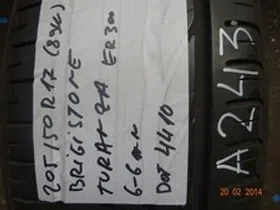 205/50 R17 (89W)
BRIGISTONE
TURANZA ER300
6-6mm
Dot 4410
A243
20 02 2014